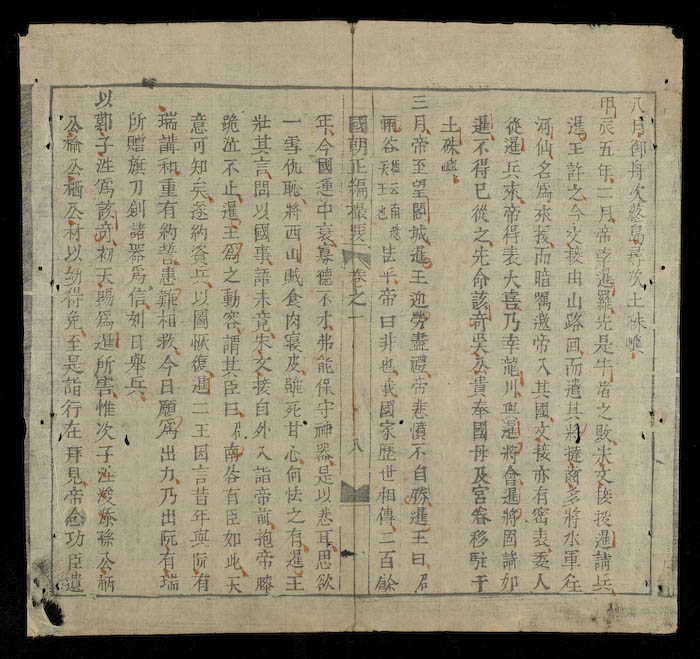 八月御舟次葢島尋次土硃嶼
甲辰五年二月帝幸暹羅先是牛渚之敗朱文接投暹請兵
暹王許之令文接由山路回而遣其將撻齒多將水軍徃
河仙名爲來援而暗囑邀帝入其國文接亦有密表委人
從暹兵來帝得表大喜乃幸龍川與暹將會暹將固請如
暹不得已從之先命該奇吳公貴奉國母及宮眷移駐于
土硃嶼
三月帝至望閣城暹王迎勞盡禮帝悲憤不自勝暹王曰君
南谷暹云南谷天王也怯乎帝曰非也我國家歷世相傳二百餘
國朝正編撮要 卷之一 八
年今國運中衰寡德不才弗能保守神器是以悲耳思欲
一雪仇恥將西山賊食肉寢皮雖死甘心何怯之有暹王
壯其言問以國事語未竟朱文接自外入詣帝前抱帝膝
跪泣不止暹王爲之動容謂其臣曰君南谷有臣如此天
意可知矣遂約資兵以圖恢復暹二王因言昔年與阮有
瑞講和重有約誓患難相救今日願爲出力乃出阮有瑞
所贈旗刀劍諸器爲信刻日舉兵
以鄚子泩爲該奇初天賜爲暹所害惟次子泩浚㴍孫公柄
公榆公栖公材以幼得免至是詣行在拜見帝念功臣遺